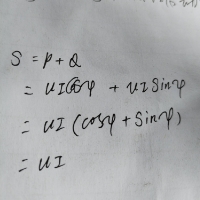 S = P + Q
= UICosφ + UISinφ
= UI (cosφ + Sinφ)
= UI